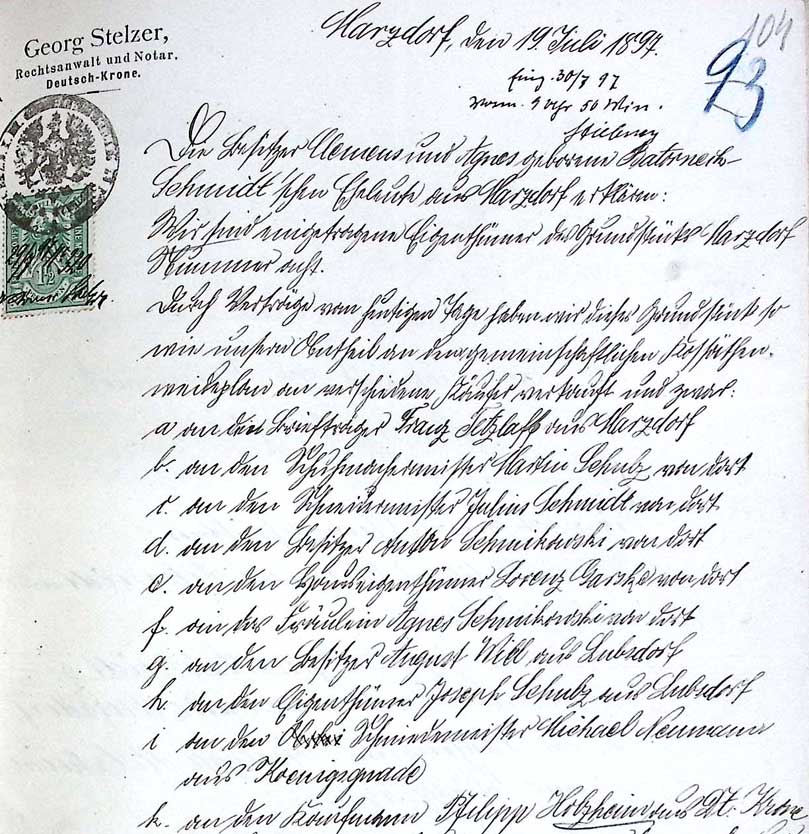 104
93
Georg Stelzer,
Rechtsanwalt und Notar.
Deutsch-Krone.
Marzdorf, den 19 Juli 1897.
Eing. 30/7 97
Vorm. 9 Uhr 50 Min.
Die Besitzer Clemens und Agnes geborene
Schmidt'schen Eheleute aus Marzdorf erklären:
Wir sind eingetragene Eigenthümer des Grundstücks Marzdorf
Nummer acht.
Durch Verträge vom heutigen Tage haben wir dieses Grundstück so
wie unsern Antheil an dem gemeinschaftlichen Kossäthen-
weideplan an verschiedene Käufer verkauft und zwar:
a an den Briefträger Franz Tetzlaff aus Marzdorf
b. an den Schuhmachermeister Martin Schulz von dort
c. an den Schneidermeister Julius Schmidt von dort
d. an den Besitzer Anton Schmikowski von dort
e. an den Hauseigenthümer Lorenz Garske von dort
f. an das Fräulein Agnes Schmikowski von dort
g. an den Besitzer August Will aus Lubsdorf
h. an den Eigenthümer Joseph Schulz aus Lubsdorf
i an den Schmiedemeister Michael Neumann
aus Koenigsgnade
k. an den Kaufmann Philipp Holzheim aus Dt. Krone